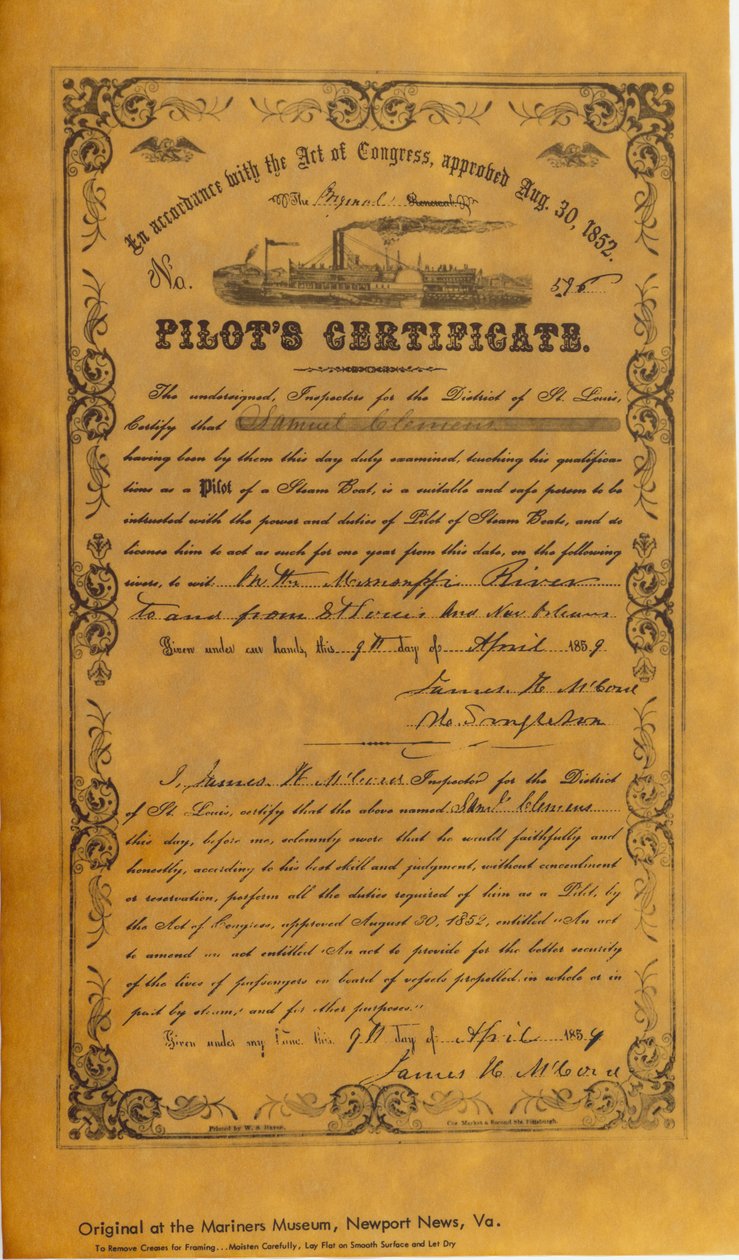 In accordance with the Act of Congress, approved Aug. 30, 1852.
The Original Renewal
No. 596
PILOT'S CERTIFICATE.
The undersigned, Inspectors for the District of St. Louis,
Certify that Samuel Clemens
having been by them this day duly examined, touching his qualifica-
tions as a Pilot of a Steam Boat, is a suitable and safe person to be
intrusted with the power and duties of Pilot of Steam Boats, and do
license him to act as such for one year from this date, on the following
rivers, to wit On the Mississippi River
to and from St Louis And New Orleans
Given under our hands, this 9th day of April 1859
James H McCord
Singleton
I, James H McCord Inspector for the District
of St. Louis, certify that the above named Saml Clemens
this day, before me, solemnly swore that he would faithfully and
honestly, according to his best skill and judgment, without concealment
or reservation, perform all the duties required of him as a Pilot, by
the Act of Congress, approved August 30, 1852, entitled "An act
to amend an act entitled "An act to provide for the better security
of the lives of passengers on board of vessels propelled in whole or in
part by steam," and for other purposes."
Given under my this 9th day of April 1859
James H McCord
Printed by W. S. Haven, Cor. Market & Second Sts. Pittsburgh.
Original at the Mariners Museum, Newport News, Va.
To Remove Creases for Framing...Moisten Carefully, Lay Flat on Smooth Surface and Let Dry